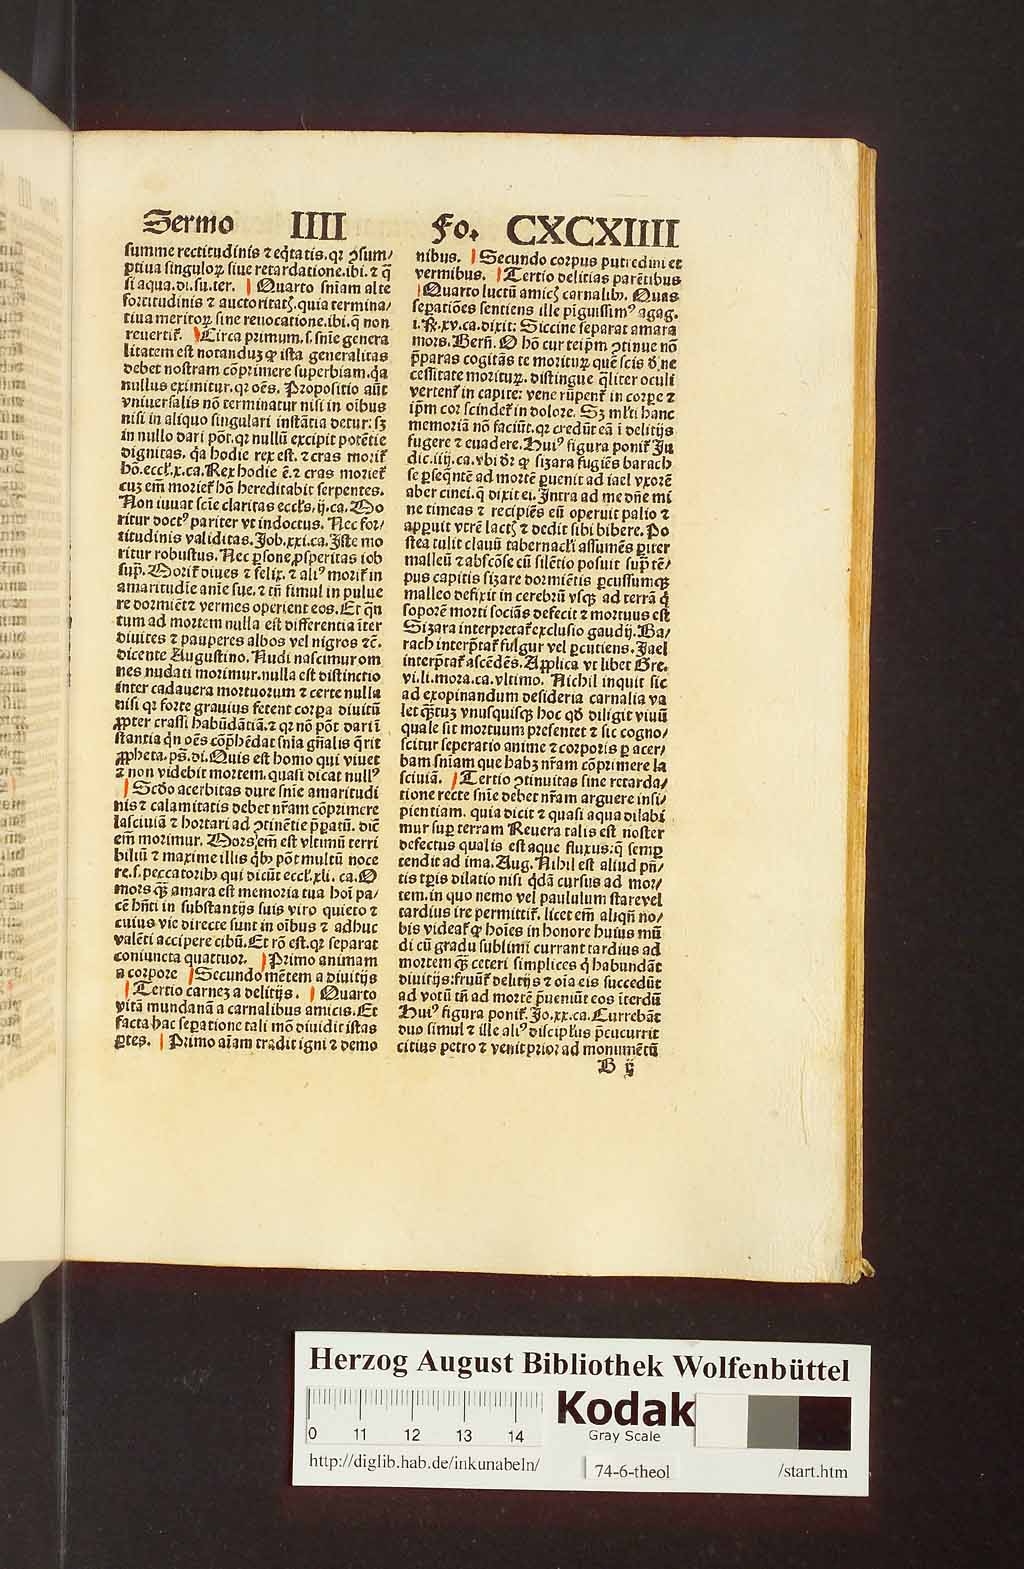 Sermo IIII Fo. CXCXIIII
summe rectitudinis ⁊ eq̄tatis. qꝛ ↄsum/
ptiua singuloꝝ siue retardatione. ibi. ⁊ q̄
si aqua. di. su. ter. Quarto sn̄iam alte
fortitudinis ⁊ auctoritatꝭ. quia termina/
tiua meritoꝝ sine reuocatione. ibi. q̄ non
reuertit᷑. Circa primum. s. sn̄ie genera
litatem est notanduꝫ ꝙ ista generalitas
debet nostram cōprimere superbiam. q̄a
nullus eximitur. qꝛ oēs. Propositio aūt
vniuersalis nō terminatur nisi in oībus
nisi in aliquo singulari instātia detur: sꝫ
in nullo dari pōt. qꝛ nullū excipit potētie
dignitas. q̄a hodie rex est. ⁊ cras morit᷑
hō. eccl̄. x. ca. Rex hodie ē. ⁊ cras moriet᷑
cuꝫ em̄ moriet᷑ hō hereditabit serpentes.
Non iuuat scīe claritas eccl̄s. ij. ca. Mo
ritur doctꝰ pariter vt indoctus. Nec for/
titudinis validitas. Job. xxi. ca. Iste mo
ritur robustus. Nec ꝑsone ꝓsperitas iob
sup̄. Morit᷑ diues ⁊ felix. ⁊ aliꝰ morit᷑ in
amaritudīe anīe sue. ⁊ tn̄ simul in pulue
re dormiēt ⁊ vermes operient eos. Et q̄n
tum ad mortem nulla est differentia īter
diuites ⁊ pauperes albos vel nigros ⁊c̄.
dicente Augustino. Nudi nascimur om
nes nudati morimur. nulla est distinctio
inter cadauera mortuorum ⁊ certe nulla
nisi qꝛ forte grauius fetent corꝑa diuitū
ꝓpter crassi habūdātiā. ⁊ qꝛ nō pōt dari ī
stantia q̄n oēs cōp̄hēdat sn̄ia gn̄alis q̄rit
ꝓpheta. ps̄. di. Quis est homo qui viuet
⁊ non videbit mortem. quasi dicat nullꝰ
Scd̄o acerbitas dure sn̄ie amaritudi
nis ⁊ calamitatis debet nr̄am cōprimere
lasciuiā ⁊ hortari ad ↄtinētie p̄patū. dic̄
em̄ morimur. Mors em̄ est vltimū terri
biliū ⁊ maxime illis q̄bꝫ pōt multū noce
re. s. peccatoribꝫ qui dicūt eccl̄. xli. ca. O
mors q̄ꝫ amara est memoria tua hoī pa/
cē hn̄ti in substantijs suis viro quieto ⁊
cuius vie directe sunt in oībus ⁊ adhuc
valēti accipere cibū. Et rō est. qꝛ separat
coniuncta quattuor. Primo animam
a corpore Secundo mētem a diuitijs
Tertio carneꝫ a delitijs. Quarto
vitā mundanā a carnalibus amicis. Et
facta hac sepatione tali mō diuidit istas
ꝑtes. Primo aīam tradit igni ⁊ demo
nibus. Secundo corpus putredini et
vermibus. Tertio delitias parētibus
Quarto luctū amicꝭ carnalibꝫ. Quas
seperatiōes sentiens ille pīguissimꝰ agag.
i. R̄. xv. ca. dixit: Siccine separat amara
mors. Bern̄. O hō cur teip̄m ↄtinue nō
p̄paras cogitās te morituꝝ que scis de ne
cessitate morituꝝ. distingue q̄liter oculi
vertent᷑ in capite: vene rūpent᷑ in corꝑe ⁊
ip̄m cor scindet᷑ in dolore. Sꝫ ml̄ti hanc
memoriā nō faciūt. qꝛ credūt eā ī delitijs
fugere ⁊ euadere. Huiꝰ figura ponit᷑ Ju
dic. iiij. ca. vbi dr̄ ꝙ sizara fugiēs barach
se ꝑseq̄ntē ad mortē ꝑuenit ad iael vxorē
aber cinei. q̄ dixit ei. Intra ad me dn̄e mi
ne timeas ⁊ recipiēs eū operuit palio ⁊
apperuit vtrē lactꝭ ⁊ dedit sibi bibere. Po
stea tulit clauū tabernacl̄i assumēs ꝑiter
malleū ⁊ abscōse cū silētio posuit sup̄ tē/
pus capitis sizare dormiētis ꝑcussumqꝫ
malleo defixit in cerebrū vsqꝫ ad terrā q̇
soporē morti sociās defecit ⁊ mortuus est
Sizara interpretat᷑ exclusio gaudij. Ba/
rach interp̄tat᷑ fulgur vel ꝑcutiens. Jael
interp̄tat᷑ ascēdēs. Applica vt libet Gre.
vi. li. mora. ca. vltimo. Nichil inquit sic
ad exopinandum desideria carnalia va
let q̄ꝫtuꝫ vnusquisqꝫ hoc qd̄ diligit viuū
quale sit mortuum presentet ⁊ sic cogno/
scitur seperatio anime ⁊ corporis ꝑ acer/
bam sn̄iam que habꝫ nr̄am cōprimere la
sciuiā. Tertio ↄtinuitas sine retarda/
tione recte sn̄ie debet nr̄am arguere insi/
pientiam. quia dicit ⁊ quasi aqua dilabi
mur suꝑ terram Reuera talis est noster
defectus qualis est aque fluxus: q̄ semꝑ
tendit ad ima. Aug. Nihil est aliud pn̄/
tis tꝑis dilatio nisi q̄dā cursus ad mor/
tem. in quo nemo vel paululum stare vel
tardius ire permittit᷑. licet em̄ aliqn̄ no/
bis videat᷑ ꝙ hoīes in honore huius mū
di cū gradu sublimi currant tardius ad
mortem q̄ꝫ ceteri simplices q̇ habundāt
diuitijs: fruūt᷑ delitijs ⁊ oīa eis succedūt
ad votū tn̄ ad mortē p̄ueniūt eos īterdū
Huiꝰ figura ponit᷑. Jo. xx. ca. Currebāt
duo simul ⁊ ille aliꝰ discipl̄us p̄cucurrit
citius petro ⁊ venit prior ad monumētū
B ij
Herzog August Bibliothek Wolfenbüttel
0 11 12 13 14
Kodak
Gray Scale
http://diglib.hab.de/inkunabeln/ 74-6-theol /start.htm